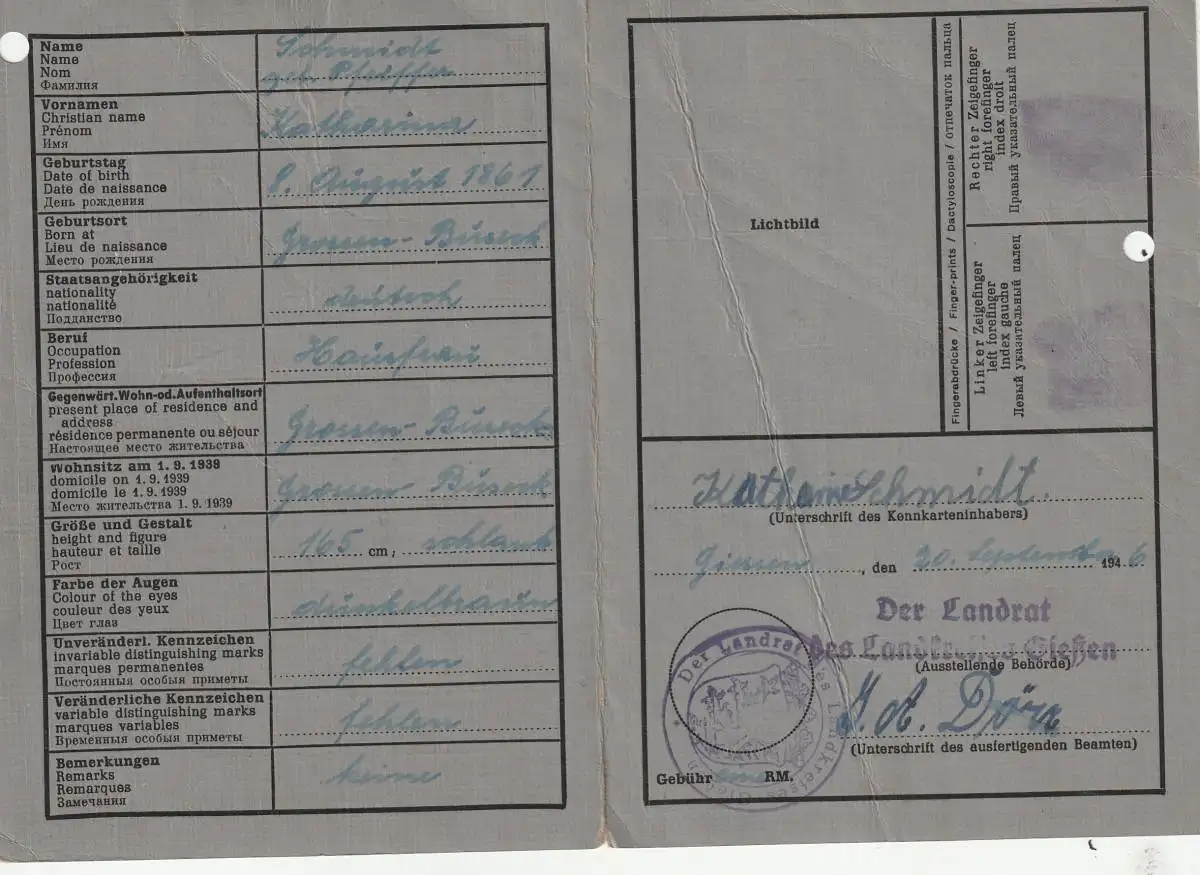 Name
Name
Nom
Фамилия
Schmidt
geb. Pfeiffer
Vornamen
Christian name
Prénom
Имя
Katharina
Geburtstag
Date of birth
Date de naissance
День рождения
8. August 1861
Geburtsort
Born at
Lieu de naissance
Место рождения
Grossen-Buseck
Staatsangehörigkeit
nationality
nationalité
Подданство
deutsch
Beruf
Occupation
Profession
Профессия
Hausfrau
Gegenwärt. Wohn-od. Aufenthaltsort
present place of residence and
address
résidence permanente ou séjour
Настоящее место жительства
Grossen-Buseck
Wohnsitz am 1. 9. 1939
domicile on 1. 9. 1939
domicile le 1. 9. 1939
Место жительства 1. 9. 1939
Grossen Buseck
Größe und Gestalt
height and figure
hauteur et taille
Рост
165 cm; schlank
Farbe der Augen
Colour of the eyes
couleur des yeux
Цвет глаз
dunkelbraun
Unveränderl. Kennzeichen
invariable distinguishing marks
marques permanentes
Постоянныя особыя приметы
fehlen
Veränderliche Kennzeichen
variable distinguishing marks
marques variables
Временныя особыя приметы
fehlen
Bemerkungen
Remarks
Remarques
Замечания
keine
Lichtbild
Fingerabdrücke / Finger-prints / Dactyloscopie / Отпечаток пальца
Rechter Zeigefinger
right forefinger
index droit
Правый указательный палец
Linker Zeigefinger
left forefinger
index gauche
Левый указательный палец
Katharine Schmidt.
(Unterschrift des Kennkarteninhabers)
Giessen, den 20. September 1946
Der Landrat
des Landkreises Gießen
(Ausstellende Behörde)
Der Landrat des Landkreises Gießen
I. A. Dörr
(Unterschrift des ausfertigenden Beamten)
Gebühr RM.